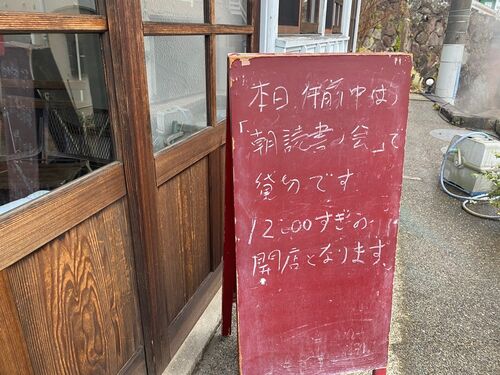 本日、午前中は
「朝読書ノ会」で
貸切です
12:00すぎの
開店となります。